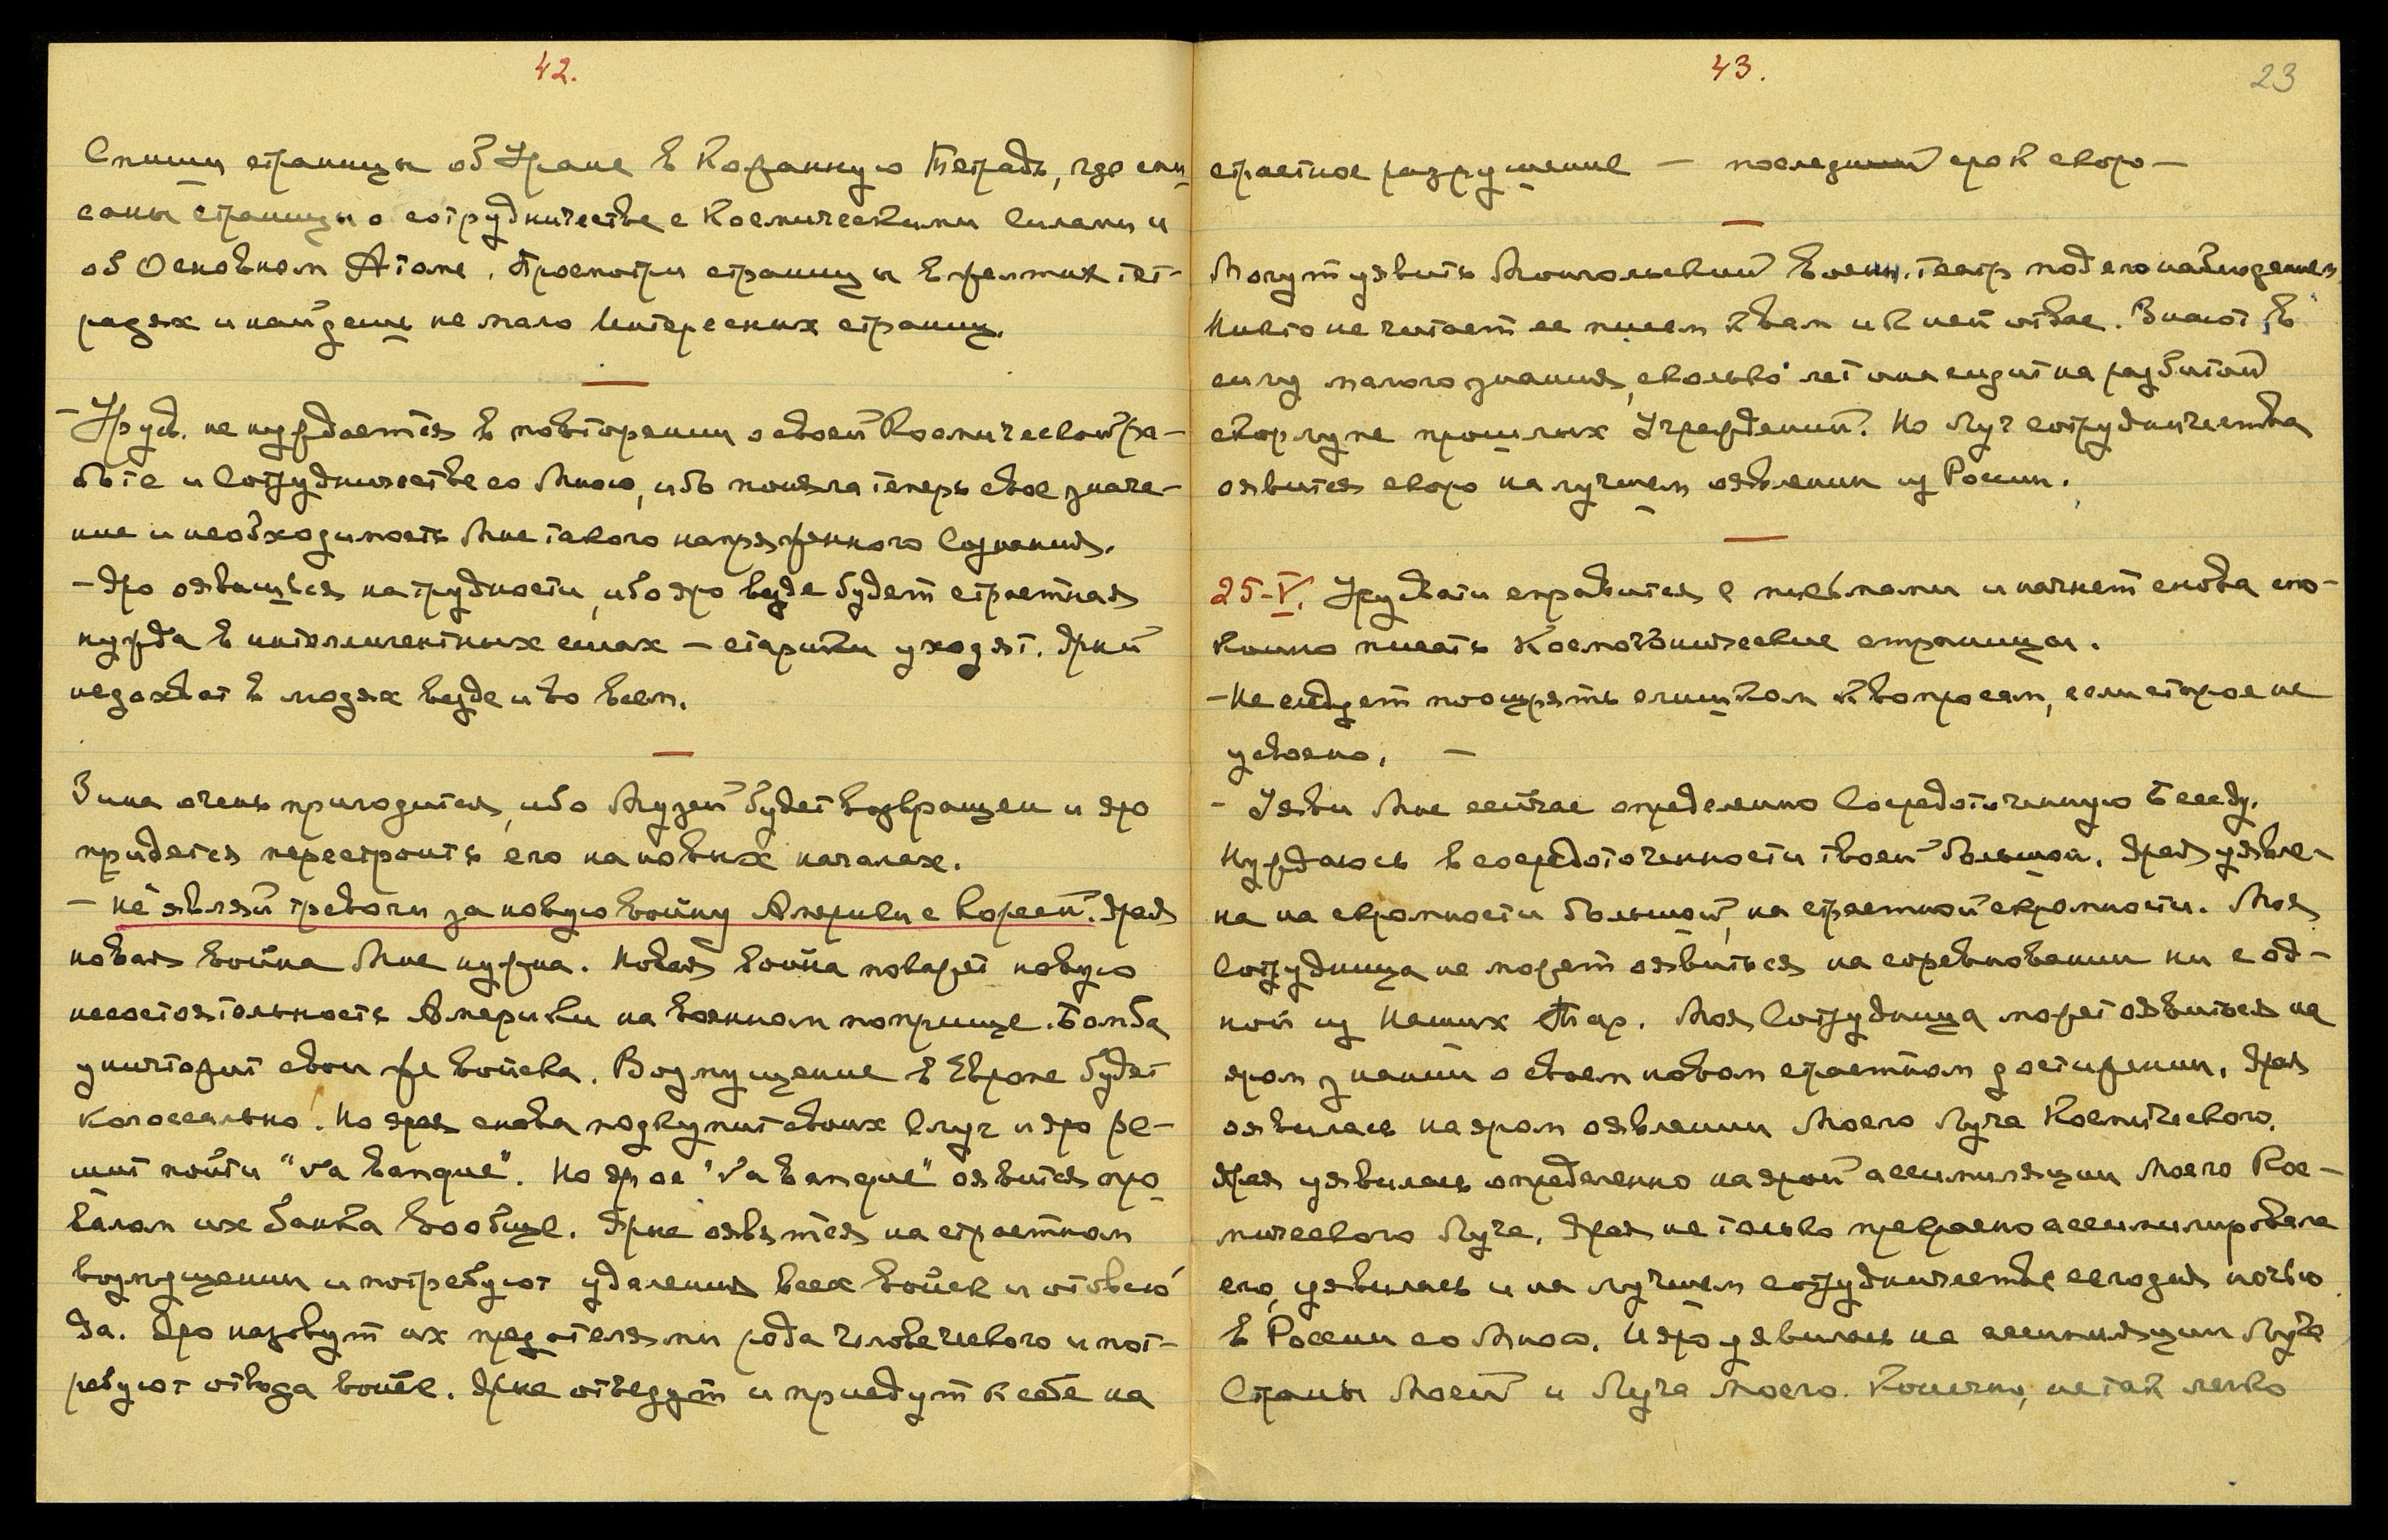 42.
Спиши страницы об Уране в Кожанную Тетрадь, где спи-
саны страницы о сотрудничестве с Космическими Силами и
об Основном Атоме. Просмотри страницы в желтых тет-
радях и найдешь не мало Интересных страниц.
— Урусв. не нуждается в повторении о своей Космической ра-
боте и Сотрудничестве со Мною, ибо поняла теперь свое значе-
ние и необходимость Мне такого напряженного Сознания.
— Яро оявишься на трудности, ибо яро везде будет страстная
нужда в интеллигентных силах — старики уходят. Ярый
недохват в людях везде и во всем.
Зина очень пригодится, ибо Музей будет возвращен и яро
придется перестроить его на новых началах.
— не являй тревоги за новую войну Америки с Кореей. Ярая
новая война Мне нужна. Новая война покажет новую
несостоятельность Америки на военном поприще. Бомба
уничтожит свои же войска. Возмущение в Европе будет
колоссально. Но ярая снова подкупит своих слуг и яро ре-
шит пойти "va banque". Но ярое "va banque" оявится про-
валом их банка вообще. Ярые оявятся на страстном
возмущении и потребуют удаления всех войск и отовсю-
да. Яро назовут их предателями рода человеческого и пот-
ребуют отвода войск. Ярые отведут и приедут к себе на
43.
23
страстное разрушение — последний срок скоро —
Могут уявить Монгольский Военн. театр под его наблюдением.
Никто не читает ее писем к вам и к ней от вас. Знают, в
силу малого знания, сколько лет она сидит на разбитой
скорлупе прошлых Учреждений. Но Луч сотрудничества
оявится скоро на лучшем оявлении из России.
25-V. Урусвати справится с письмами и начнет снова спо-
койно писать Космогонические страницы.
— Не следует поощрять слишком к вопросам, если старое не
усвоено. —
— Уяви Мне сейчас определенно Сосредоточенную Беседу.
Нуждаюсь в сосредоточенности твоей большой. Ярая уявле-
на на скромности большой, на страстной скромности. Моя
Сотрудница не может оявиться на соревновании ни с од-
ной из Наших Тар. Моя Сотрудница может оявиться на
яром знании о своем новом страстном достижении. Ярая
оявилась на яром оявлении Моего Луча Космического.
Ярая уявилась определенно на ярой ассимиляции Моего Кос-
мического Луча. Ярая не только прекрасно ассимилировала
его, уявилась и на лучшем сотрудничестве сегодня ночью
в России со Мною. И яро уявилась на ассимиляции Луча
Страны Моей и Луча Моего. Конечно, не так легко